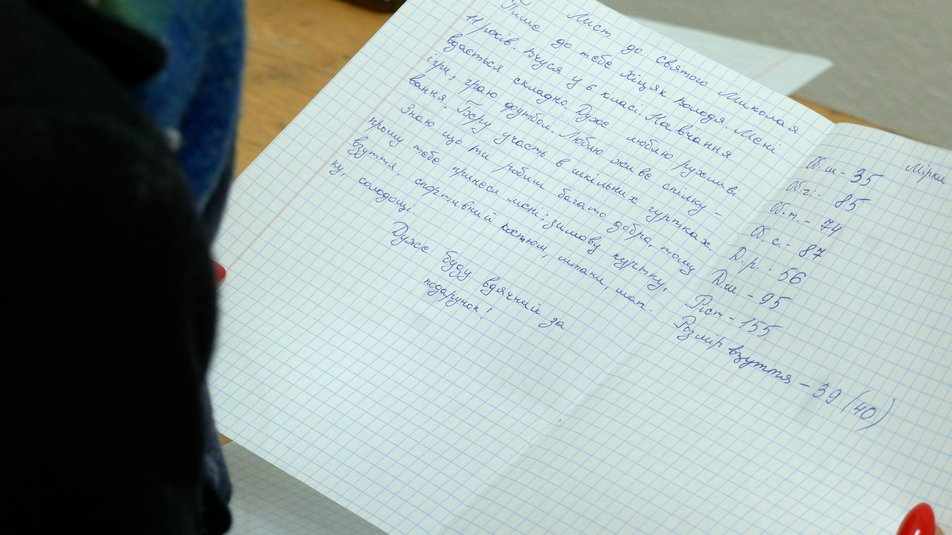 Лист до святого Миколая
Пише до тебе Хіцяк Володя. Мені
11 років. Вчуся у 6 класі. Навчання
вдається складно. Дуже люблю рухливі
ігри, граю футбол. Люблю живе спілку-
вання. Беру участь в шкільних гуртках.
Знаю що ти робиш багато добра, тому
прошу тебе принеси мені: зимову куртку,
взуття, спортивний костюм, штани, шап-
ку, солодощі
Дуже буду вдячний за
подарунок!
Мірки
О.ш - 35
О.г. - 85
О.т. - 74
О.с. - 87
Д.р. - 56
Д.ш - 95
Ріст - 155
Розмір взуття - 39 (40)